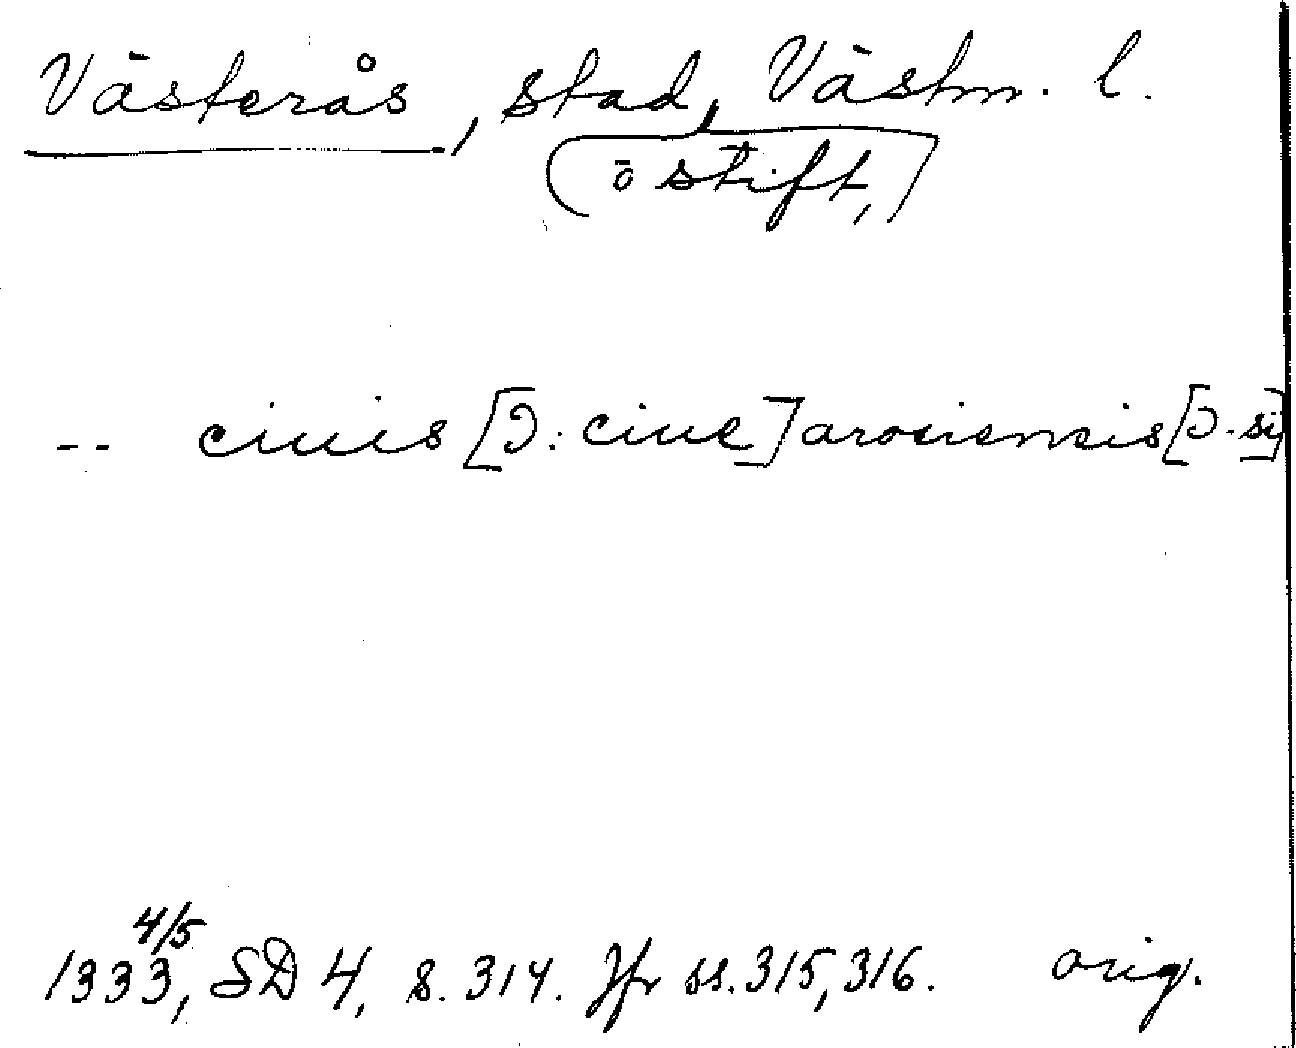 Västerås, stad, Västm. l.
(ō stift,)
-- ciuis [Ɔ: ciue] arosiensis [Ɔ. si]
4/5
1333, SD 4, s. 314. Jfr ss. 315, 316. orig.